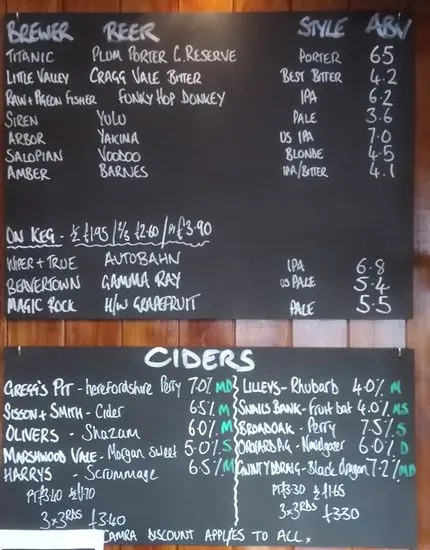 BREWER BEER STYLE ABV
TITANIC PLUM PORTER G.RESERVE PORTER 6.5
LITTLE VALLEY CRAGG VALE BITTER BEST BITTER 4.2
RAW + PIGEON FISHER FUNKY HOP DONKEY IPA 6.2
SIREN YULU PALE 3.6
ARBOR YAKIMA US IPA 7.0
SALOPIAN VOODOO BLONDE 4.5
AMBER BARNES IPA/BITTER 4.1
ON KEG - ½ £1.95 / ⅔ £2.60 / PT £3.90
WIPER + TRUE AUTOBAHN IPA 6.8
BEAVERTOWN GAMMA RAY US PALE 5.4
MAGIC ROCK H/W GRAPEFRUIT PALE 5.5
CIDERS
GREGG'S PIT - herefordshire Perry 7.0% MD
SISSON + SMITH - Cider 6.5% M
OLIVERS - Shazam 6.0% M
MARSHWOOD VALE - Morgan Sweet 5.0% S
HARRYS - Scrummage 6.5% M
PT £3.40 ½ £1.70
3 x 3RDS £3.40
LILLEYS - Rhubarb 4.0% M
SNAILS BANK - Fruit bat 4.0% MS
BROADOAK - Perry 7.5% S
ORCHARD PIG - Navelgazer 6.0% D
GWYNT Y DDRAIG - Black dragon 7.2% MD
PT £3.30 ½ £1.65
3 x 3RDS £3.30
CAMRA DISCOUNT APPLIES TO ALL.